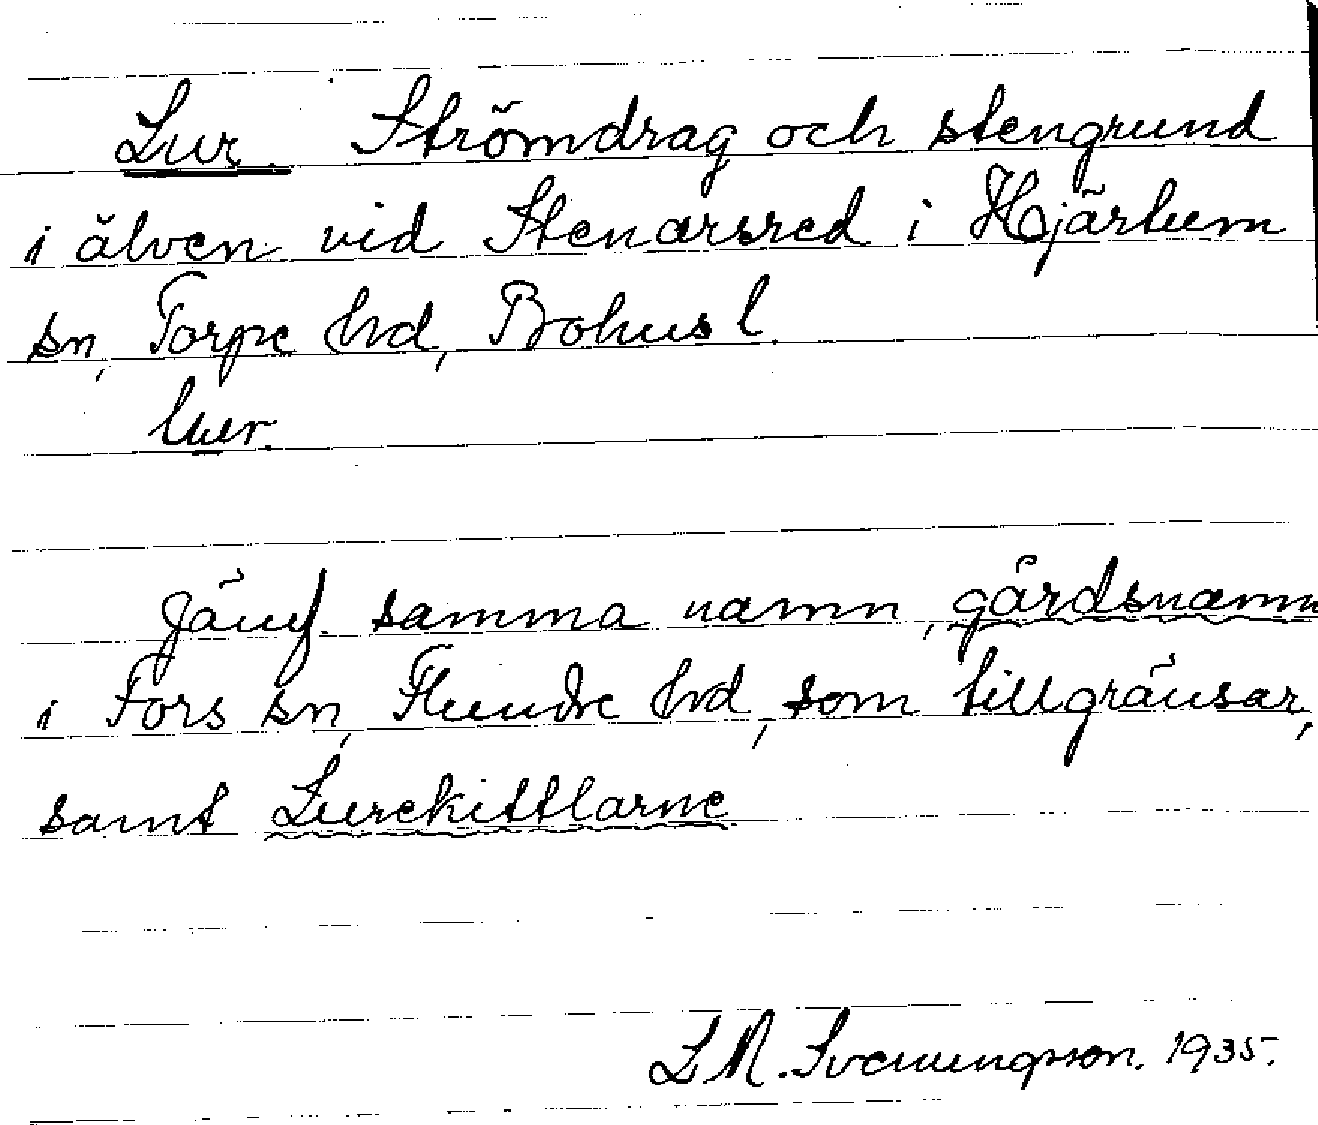 Lur. Strömdrag och stengrund
i älven vid Stenarsred i Hjärtum
sn, Torpe hd, Bohusl.
luer.
Jämf. samma namn, gårdsnamn
i Fors sn, Flundre hd, som tillgränsar,
samt Lurekittlarne
L. N. Svenungsson. 1935.